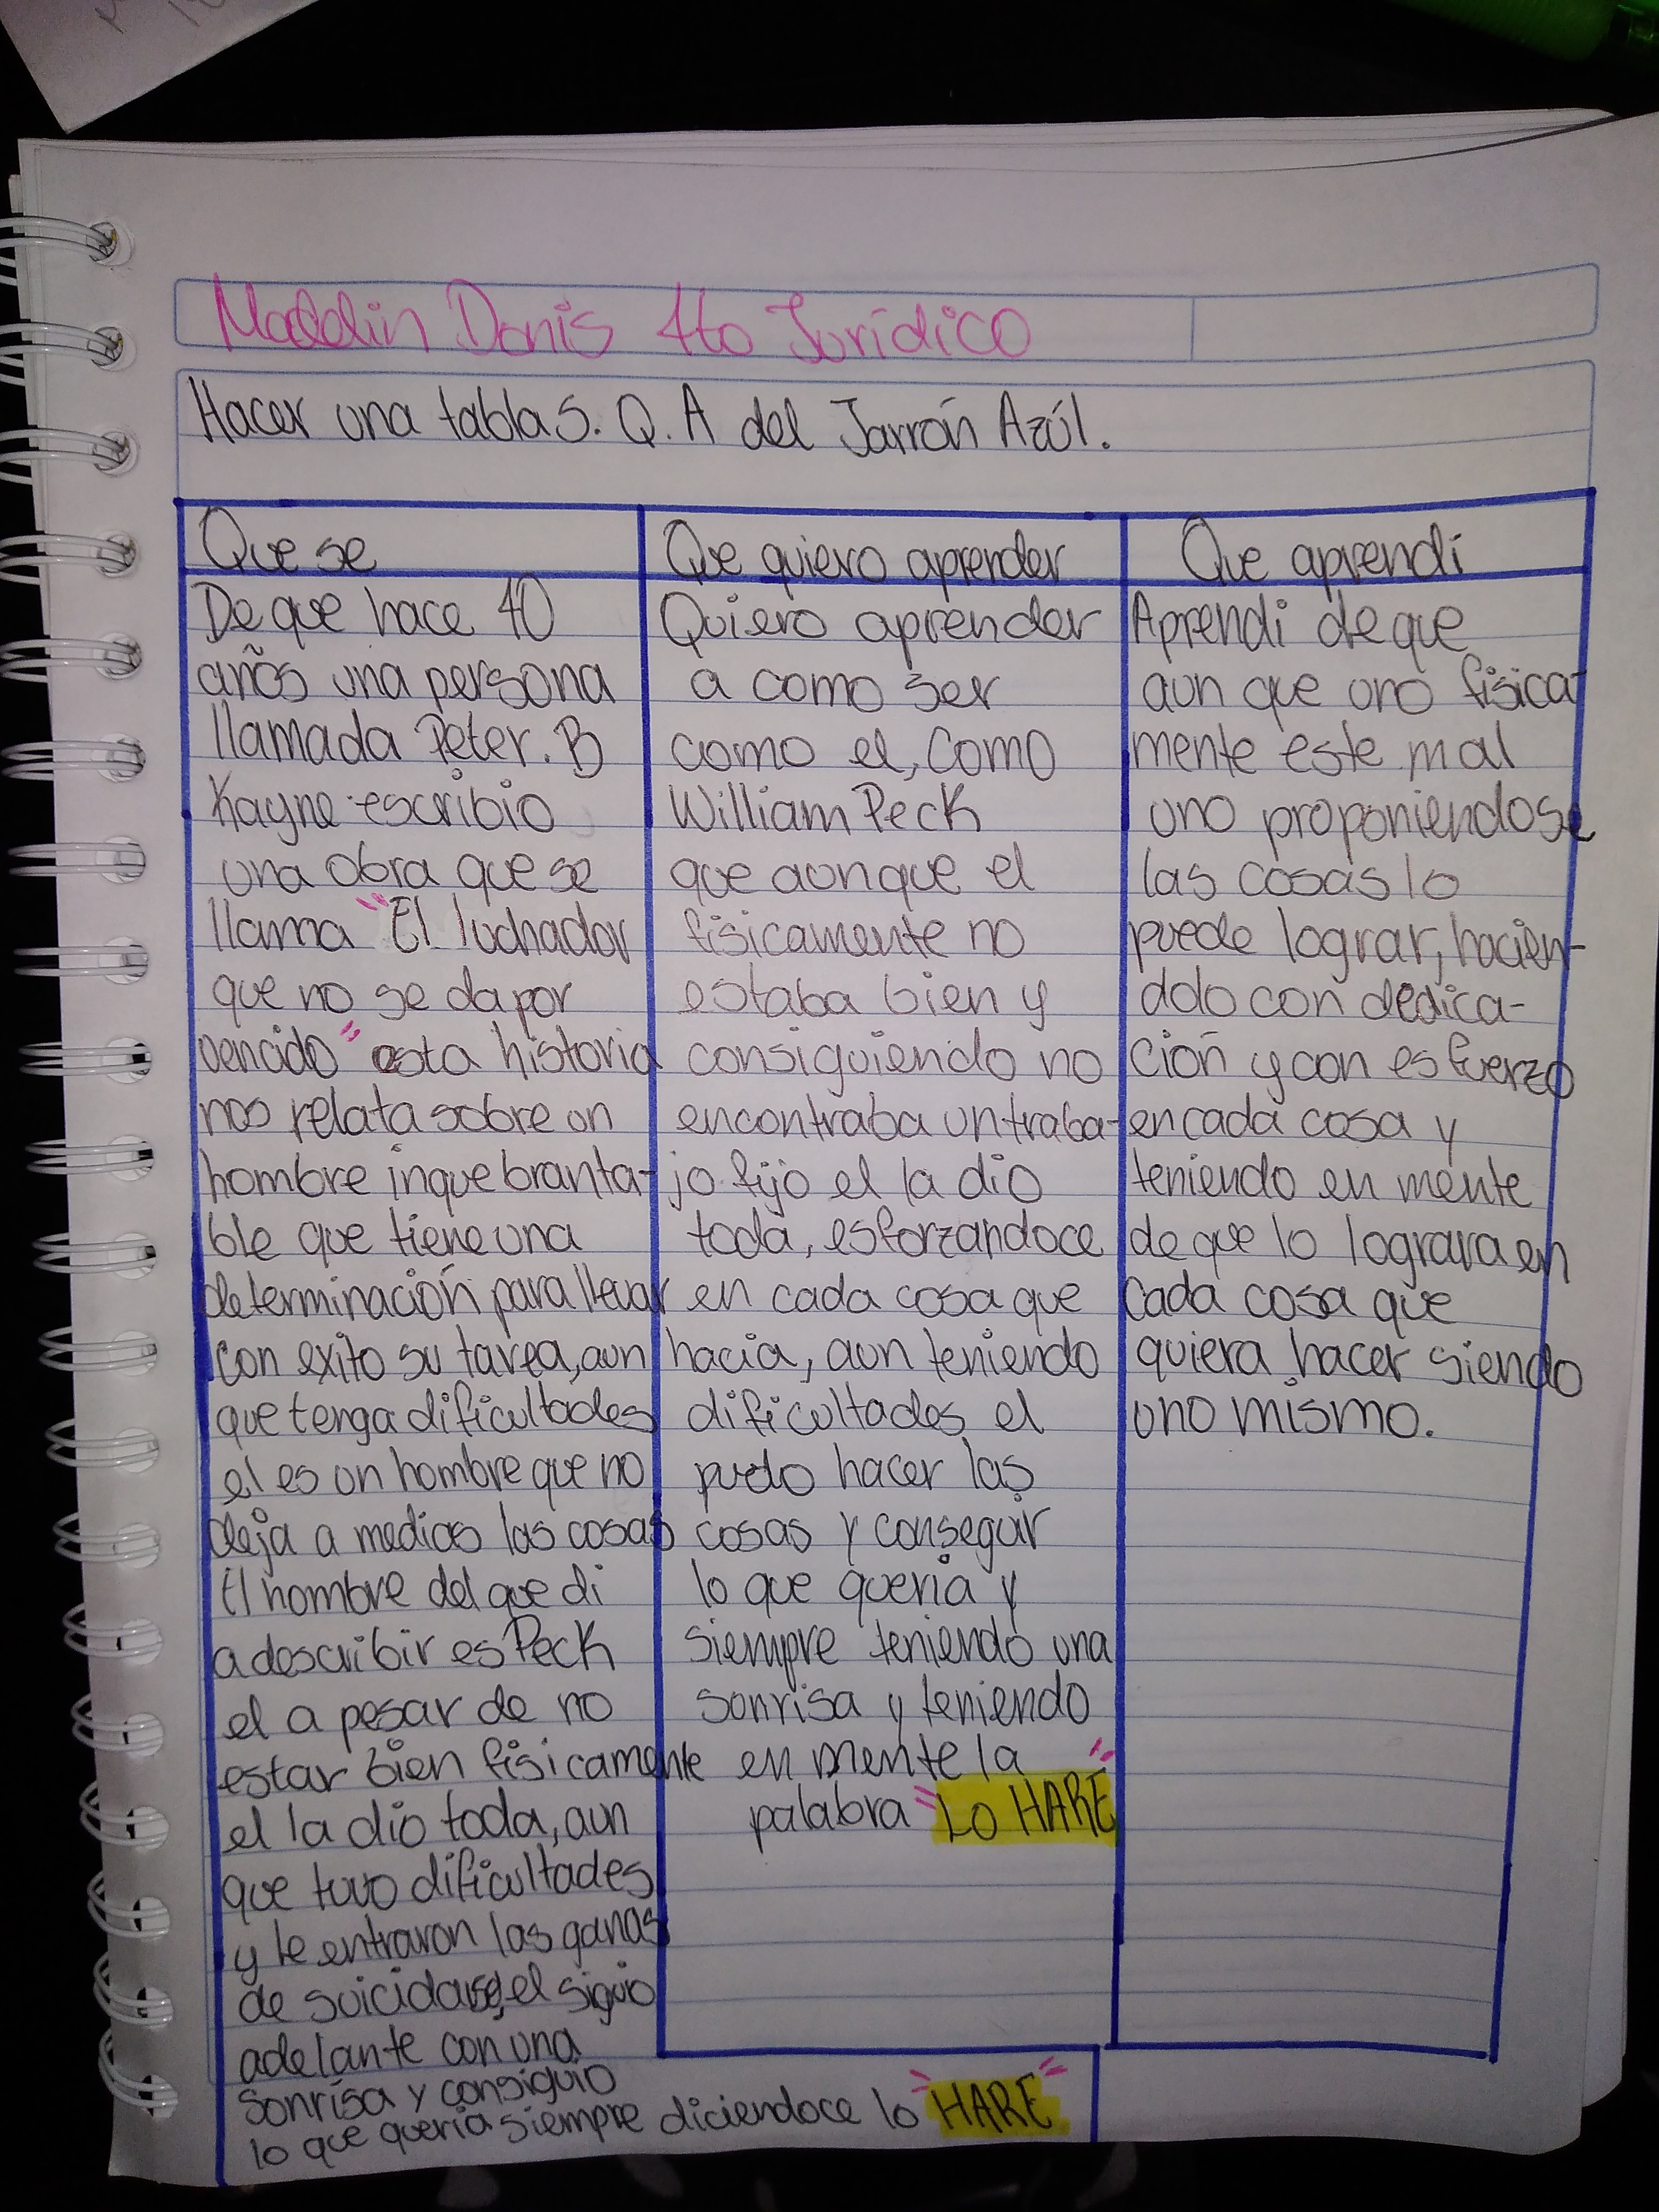 Maddlin Donis 4to Jurídico
Hacer una tabla S. Q. A del Jarrón Azúl.
Que se
De que hace 40
años una persona
llamada Peter. B
Kayne escribio
una obra que se
llama "El luchador
que no se da por
vencido" esta historia
nos relata sobre un
hombre inquebranta-
ble que tiene una
determinación para llevar
con exito su tarea, aun
que tenga dificultades
el es un hombre que no
deja a medias las cosas
El hombre del que di
a describir es Peck
el a pesar de no
estar bien fisicamente
el la dio toda, aun
que tuvo dificultades
y le entraron las ganas
de suicidarse, el siguio
adelante con una
sonrisa y consiguio
lo que queria siempre diciendoce lo "HARE"
Que quiero aprender
Quiero aprender
a como ser
como el, como
William Peck
que aunque el
fisicamente no
estaba bien y
consiguiendo no
encontraba un traba-
jo fijo el la dio
toda, esforzandoce
en cada cosa que
hacia, aun teniendo
dificultades el
pudo hacer las
cosas y conseguir
lo que queria y
siempre teniendo una
sonrisa y teniendo
en mente la
palabra "LO HARE"
Que aprendí
Aprendi de que
aun que uno fisica-
mente este mal
uno proponiendose
las cosas lo
puede lograr, hacien-
dolo con dedica-
ción y con esfuerzo
en cada cosa y
teniendo en mente
de que lo lograra en
cada cosa que
quiera hacer siendo
uno mismo.